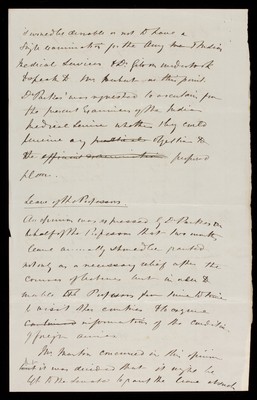 it would be desirable or not to have a
single examination for the Army and Indian
Medical Services & Dr. undertook
to speak to Mr. Herbert on this point.
Dr. Parkes was requested to ascertain from
the present Examiners of the Indian
Medical Service whether they could
perceive any objection to
the proposed
plan.
Leave of the Professors
An opinion was expressed by Dr. Parkes on
behalf of the Professors that two months
leave annually should be granted
not only as a necessary relief after the
courses of lectures but in order to
enable the Professors from time to time
to visit other countries & to acquire
information of the condition
of foreign armies
Mr. Martin concurred in this opinion
but it was decided that it might be
left to the Senate to grant the leave